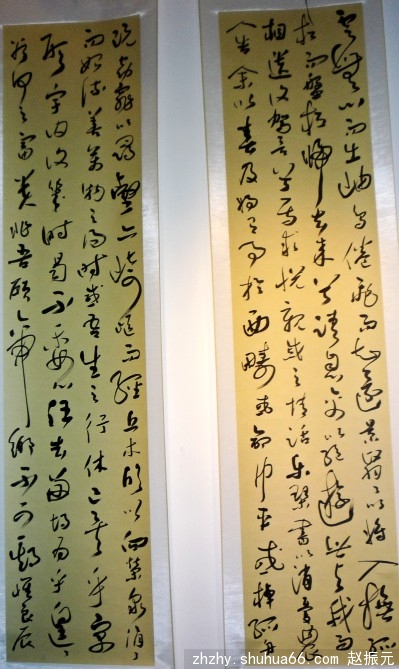 雲無心而出岫鳥倦飛而知還景翳翳以將入撫孤
松而盤桓歸去來兮請息交以絕遊世與我而
相違復駕言兮焉求悅親戚之情話樂琴書以消憂農
人告余以春及將有事於西疇或命巾車或棹孤舟
既窈窕以尋壑亦崎嶇而經丘木欣欣以向榮泉涓涓
而始流善萬物之得時感吾生之行休已矣乎寓
形宇內復幾時曷不委心任去留胡為乎遑遑
欲何之富貴非吾願帝鄉不可期懷良辰
zhzhy.shuhua66.com 赵振元